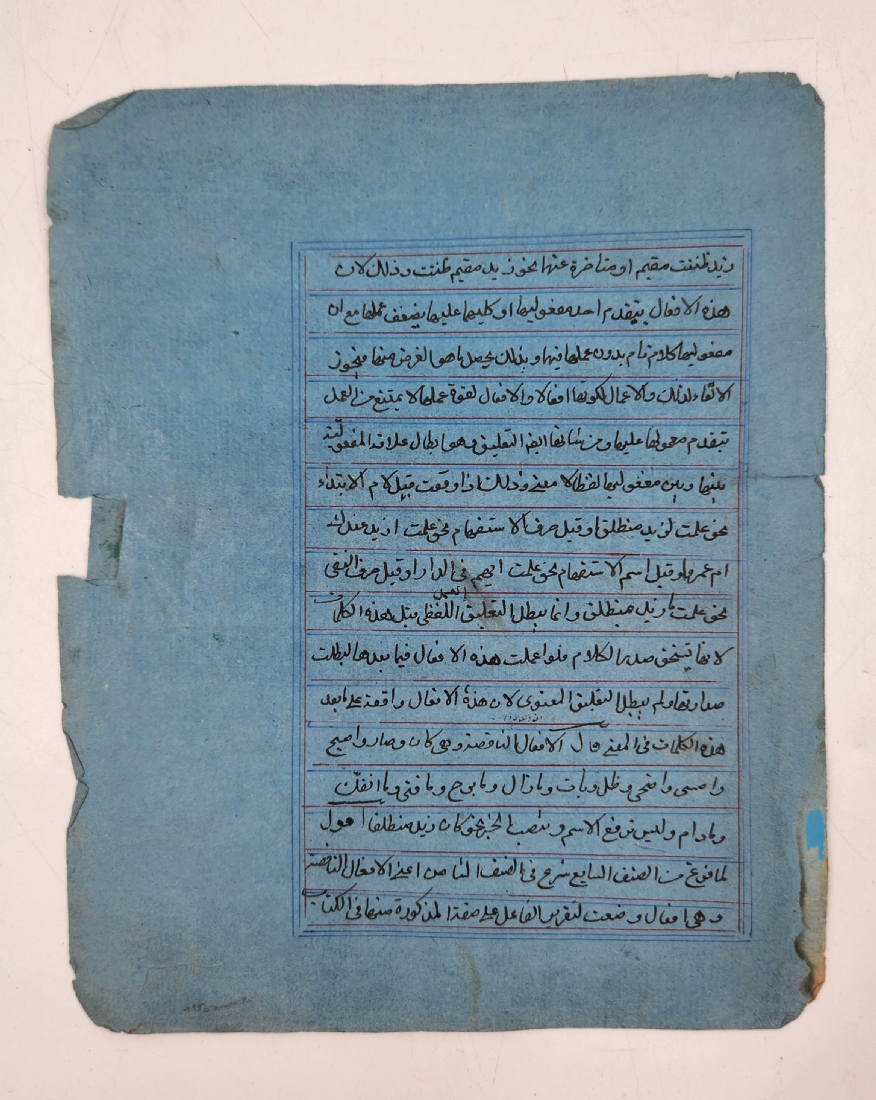 زيد ظننت مقيم او متاخرة عنها نحو زيد مقيم ظننت وذلك لان
هذه الافعال بتقدم احد مفعوليها او كليهما عليها يضعف عملها مع ان
مفعوليها كلام تام بدون عملها فيها وبذلك يحصل ما هو الغرض منها فيجوز
الالغاء لذلك والاعمال لكونها افعالا والافعال لقوة عملها لا يمتنع من العمل
بتقدم معمولها عليها ومن شانها ايضا التعليق وهو ابطال علاقة المفعولية
بينها وبين مفعوليها لفظا لا معنى وذلك اذا وقعت قبل لام الابتداء
نحو علمت لزيد منطلق او قبل حرف الاستفهام نحو علمت ازيد عندك
ام عمرو او قبل اسم الاستفهام نحو علمت ايهم في الدار او قبل حرف النفي
نحو علمت ما زيد منطلق وانما يبطل التعليق العمل اللفظي قبل هذه الكلمات
لانها تستحق صدر الكلام فلو اعملت هذه الافعال فيما بعدها لبطلت
صدارتها ولم يبطل التعليق المعنوي لان هذه الافعال واقعة على ما بعد
هذه الكلمات في المعنى قال الافعال الناقصة وهي كان وصار واصبح
وامسى واضحى وظل وبات وما زال وما برح وما فتى وما انفك
وما دام وليس ترفع الاسم وتنصب الخبر نحو كان زيد منطلقا اقول
لما فرغ من الصنف السابع شرع في الصنف الثامن اعني الافعال الناقصة
وهي افعال وضعت لتقرير الفاعل على صفة المذكورة منها في الكتاب